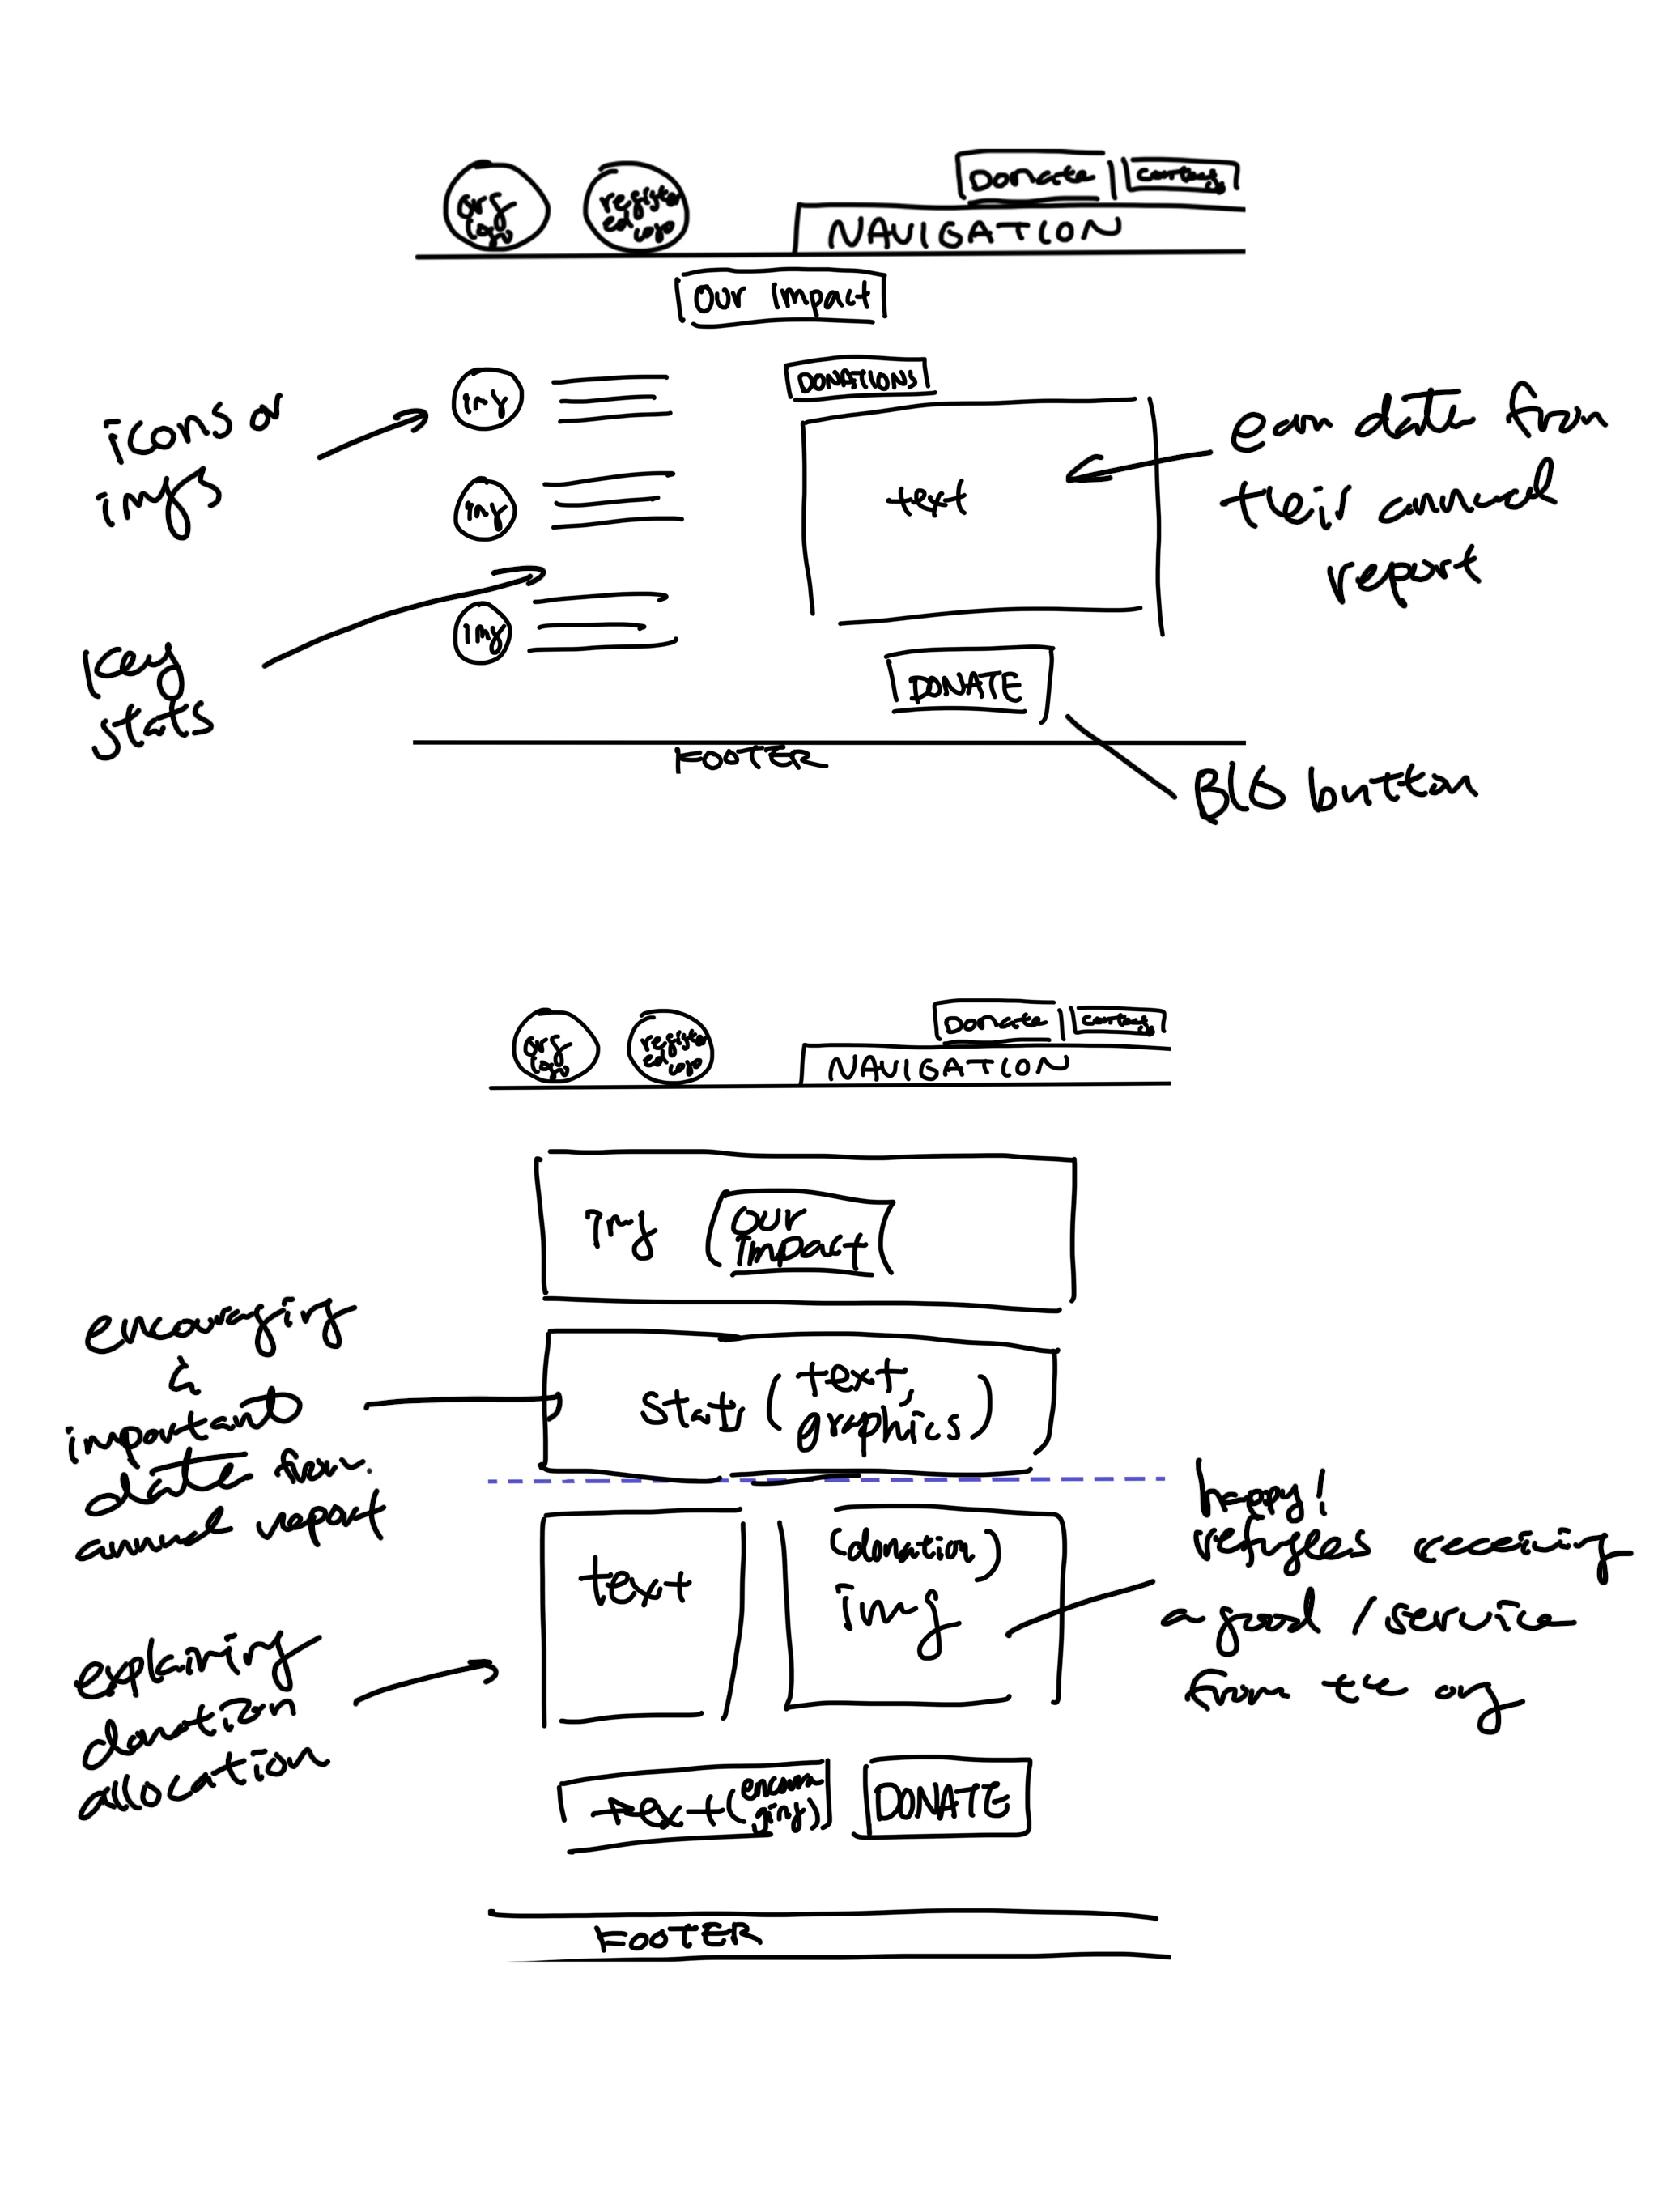 org
logo
register
ed
logo
Donate
contact
NAVIGATION
our impact
icons or
imgs
img
img
img
key
stats
DONATIONS
text
ean data from
their annual
report
DONATE
BIG button
FOOTER
org
logo
register
ed
logo
Donate
contact
NAVIGATION
img
our
impact
encouraging
&
important
data from
annual report
stats (text,
graphics)
text
(donation)
img
happy!
refugees receiving
a good / service
from the org
explaining
donation
allocation
text (encoura
ging)
DONATE
FOOTER